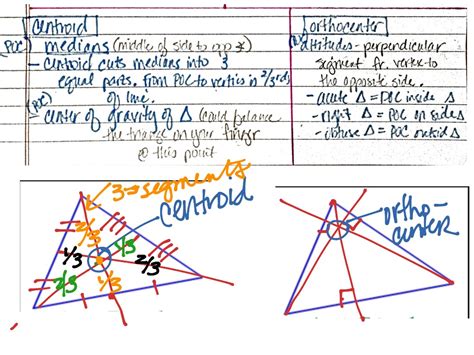 centroid
(POC) medians (middle of side to opp ∠)
- centroid cuts medians into 3
equal parts. from POC to vertex is 2/3rds
of line.
(POC)
- center of gravity of Δ (could balance
the triangle on your finger
@ this point
orthocenter
altitudes - perpendicular
segment fr. vertex to
the opposite side.
- acute Δ = POC inside Δ
- right Δ = POC on side Δ
- obtuse Δ = POC outside Δ
3 = segments
centroid
2/3
1/3
1/3
2/3
2/3
1/3
ortho-
center